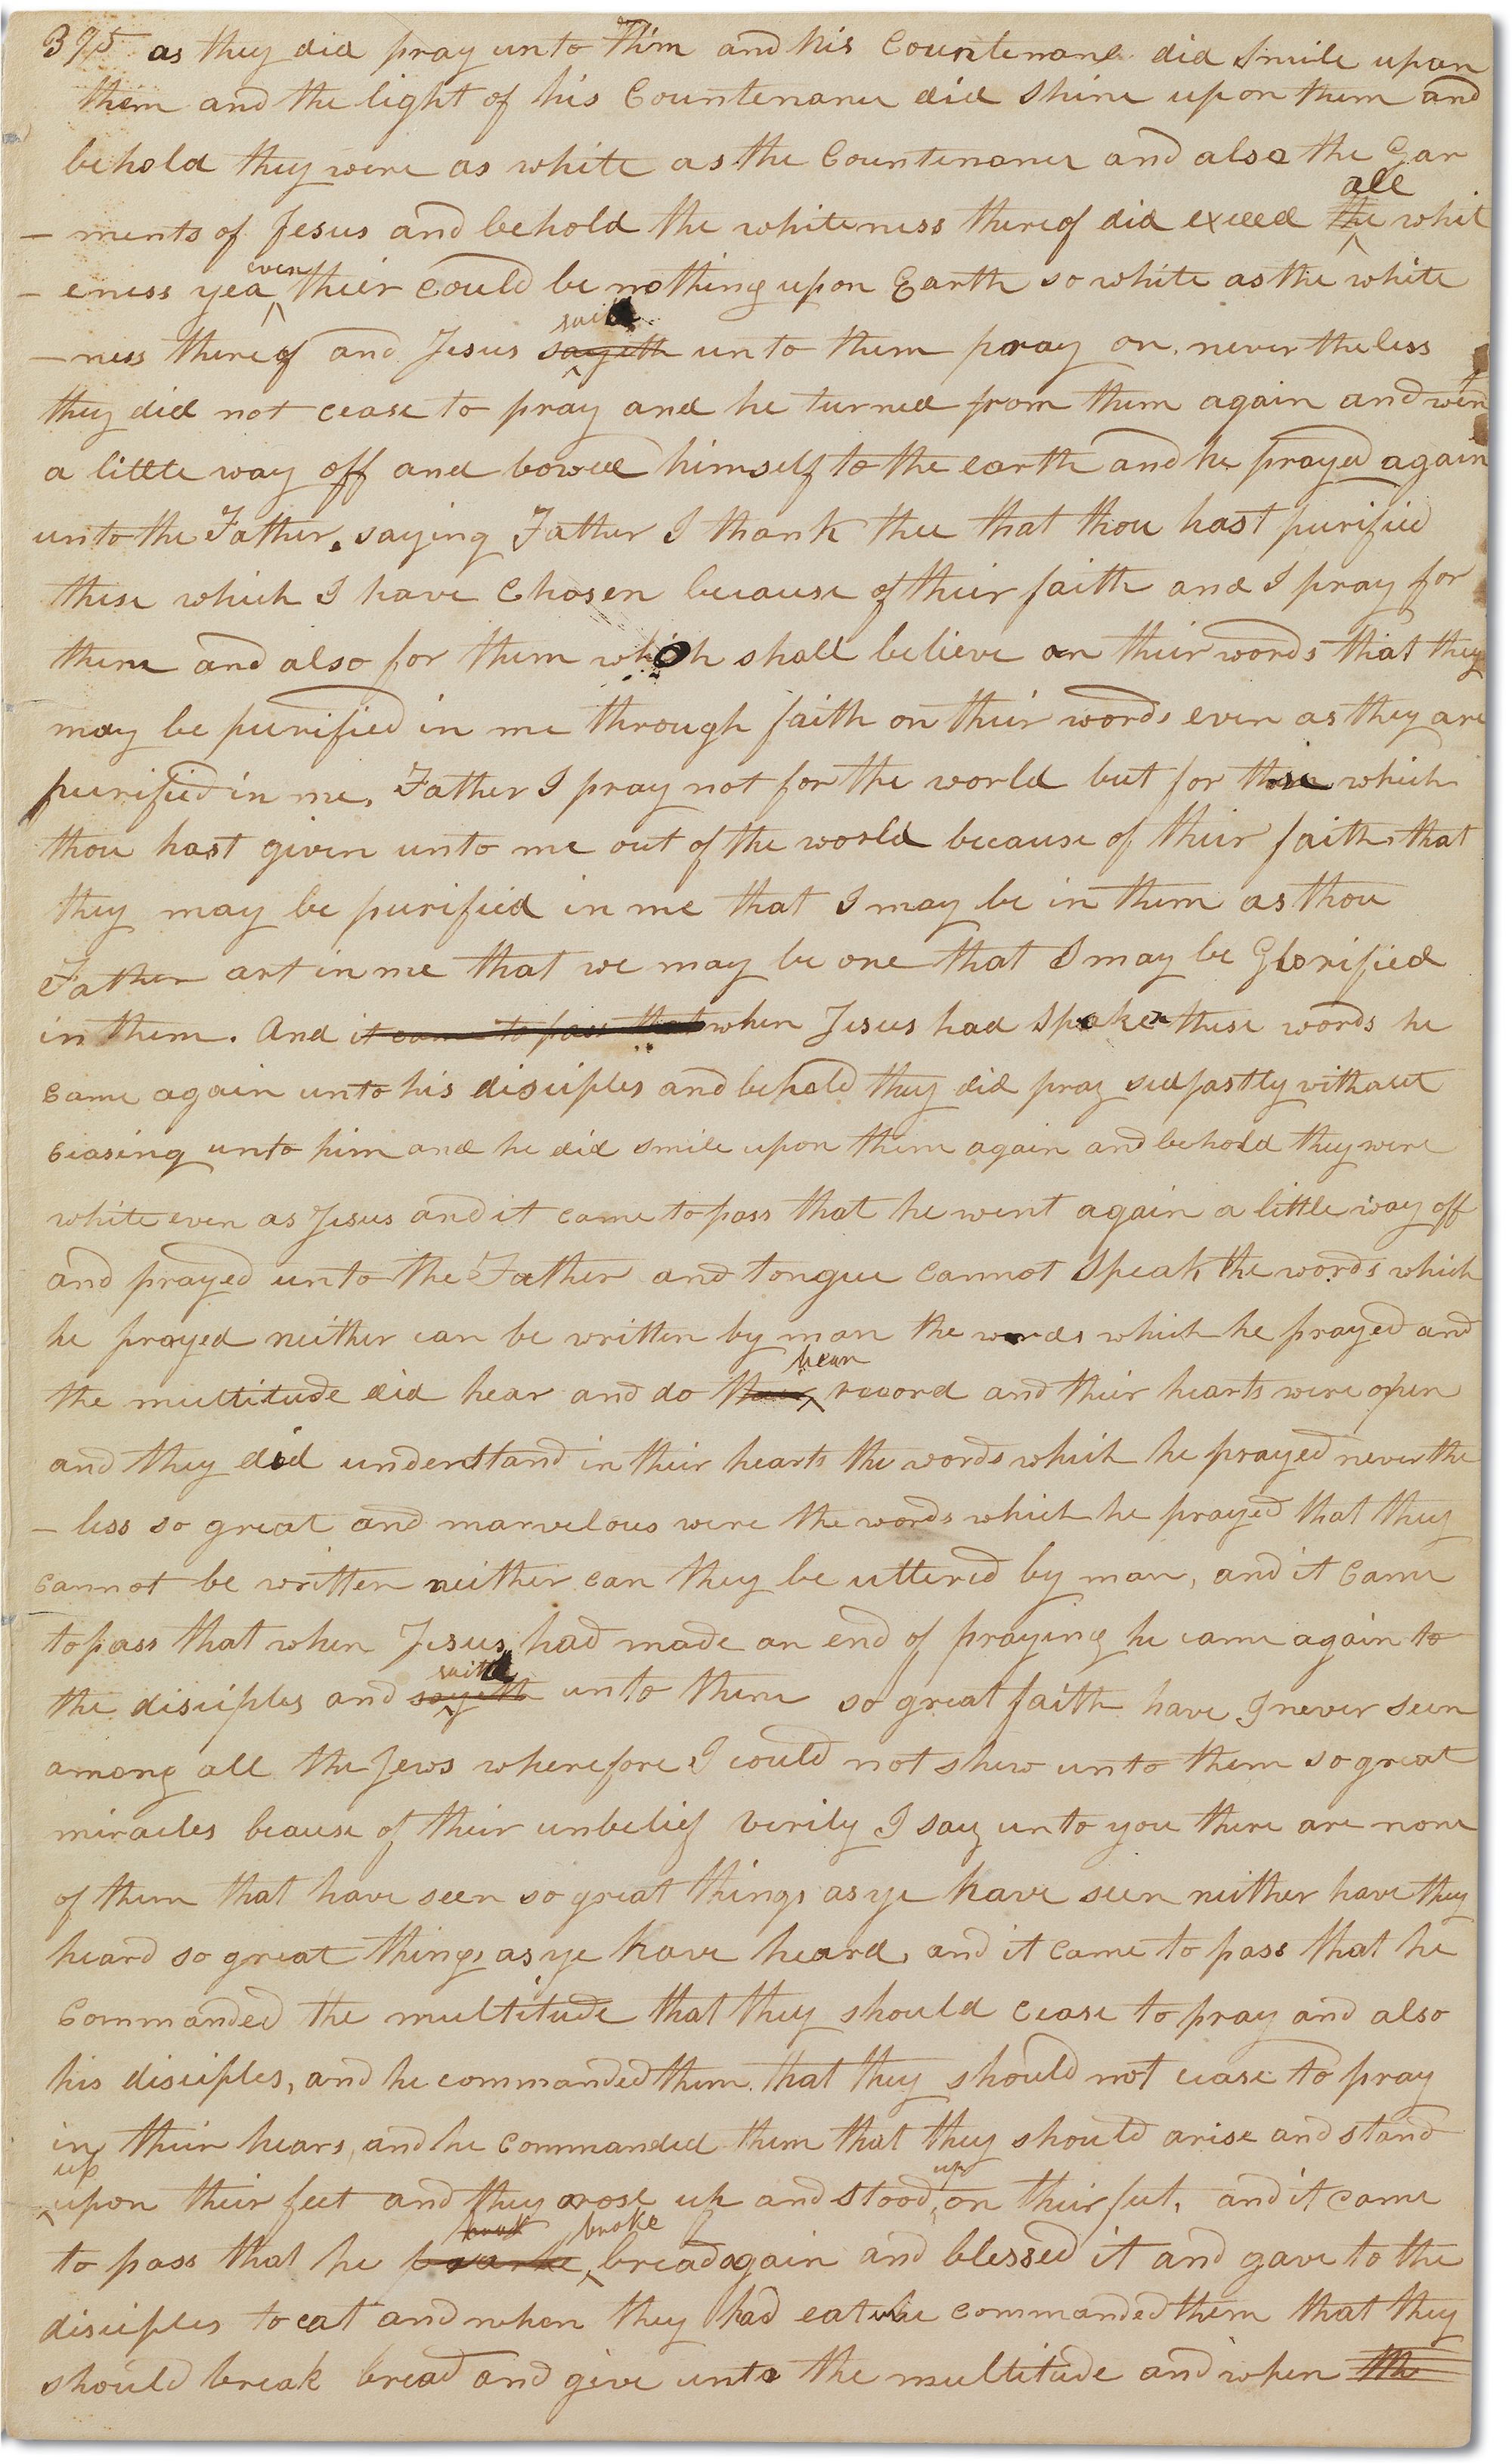 395 as they did pray unto him and his Countenance did Smile upon
them and the light of his Countenance did Shine upon them and
behold they were as white as the Countenance and also the Gar
all
– ments of Jesus and behold the whiteness thereof did exceed the whit
even
– eness yea their Could be nothing upon Earth so white as the white
said
– ness thereof and Jesus sayeth unto them pray on nevertheless
they did not cease to pray and he turned from them again and went
a little way off and bowed himself to the earth and he prayed again
unto the Father, saying Father I thank thee that thou hast purified
these which I have Chosen because of their faith and I pray for
them and also for them which shall believe on their words that they
may be purified in me through faith on their words even as they are
purified in me, Father I pray not for the world but for those which
thou hast given unto me out of the world because of their faith that
they may be purified in me that I may be in them as thou
Father art in me that we may be one that I may be Glorified
in them. And it came to pass that when Jesus had Spoken these words he
Came again unto his disciples and behold they did pray sedfastly without
Ceasing unto him and he did smile upon them again and behold they were
white even as Jesus and it came to pass that he went again a little way off
and prayed unto the Father and tongue Cannot Speak the words which
he prayed neither can be written by man the words which he prayed and
bear
the multitude did hear and do record and their hearts were open
and they did understand in their hearts the words which he prayed never the
– less so great and marvelous were the words which he prayed that they
Cannot be written neither can they be uttered by man, and it Came
to pass that when Jesus had made an end of praying he came again to
said
the disciples and sayeth unto them so great faith have I never seen
among all the Jews wherefore I could not shew unto them so great
miracles beause of their unbelief Verily I say unto you there are none
of them that have seen so great things as ye have seen neither have they
heard so great things as ye have heard, and it Came to pass that he
Commanded the multitude that they should cease to pray and also
his disciples, and he commanded them that they should not cease to pray
in their hears, and he Commanded them that they should arise and stand
up up
upon their feet and they arose up and stood on their feet, and it came
broke
to pass that he bread again and blessed it and gave to the
disciples to eat and when they had eat he commanded them that they
should break bread and give unto the multitude and when the